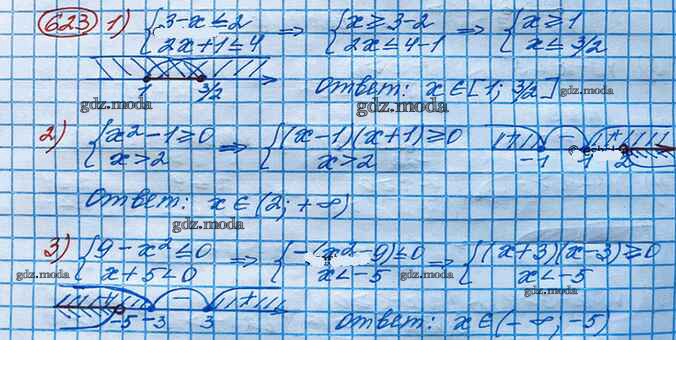 623 1) { 3-x≤2 ⇒ { x≥3-2 ⇒ { x≥1
2x+1≤4 2x≤4-1 x≤3/2
1 3/2 Ответ: x∈[1; 3/2] gdz.moda
gdz.moda gdz.moda
2) { x²-1≥0 ⇒ { (x-1)(x+1)≥0 + - +
x>2 x>2 -1 1 2
Ответ: x∈(2; +∞)
gdz.moda
3) { 9-x²≤0 ⇒ { -(x²-9)≤0 ⇒ { (x+3)(x-3)≥0
gdz.moda x+5<0 x<-5 gdz.moda x<-5
- + gdz.moda
-5 -3 3 Ответ: x∈(-∞; -5)